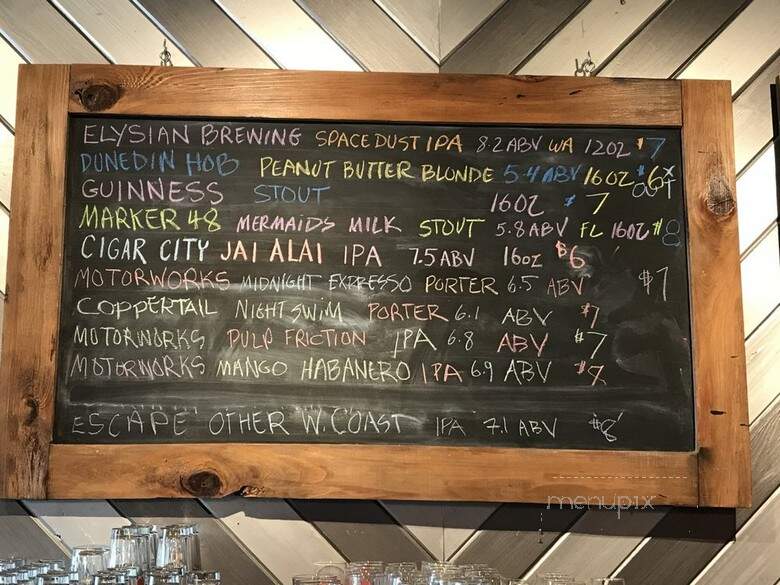 ELYSIAN BREWING SPACE DUST IPA 8.2 ABV WA 12OZ $7
DUNEDIN HOB PEANUT BUTTER BLONDE 5.4 ABV 16OZ $6 OUT
GUINNESS STOUT 16OZ $7
MARKER 48 MERMAIDS MILK STOUT 5.8 ABV FL 16OZ $8
CIGAR CITY JAI ALAI IPA 7.5 ABV 16oz $6
MOTORWORKS MIDNIGHT EXPRESSO PORTER 6.5 ABV $7
COPPERTAIL NIGHT SWIM PORTER 6.1 ABV $7
MOTORWORKS PULP FRICTION IPA 6.8 ABV $7
MOTORWORKS MANGO HABANERO IPA 6.9 ABV $8
ESCAPE OTHER W. COAST IPA 7.1 ABV $8
menupix